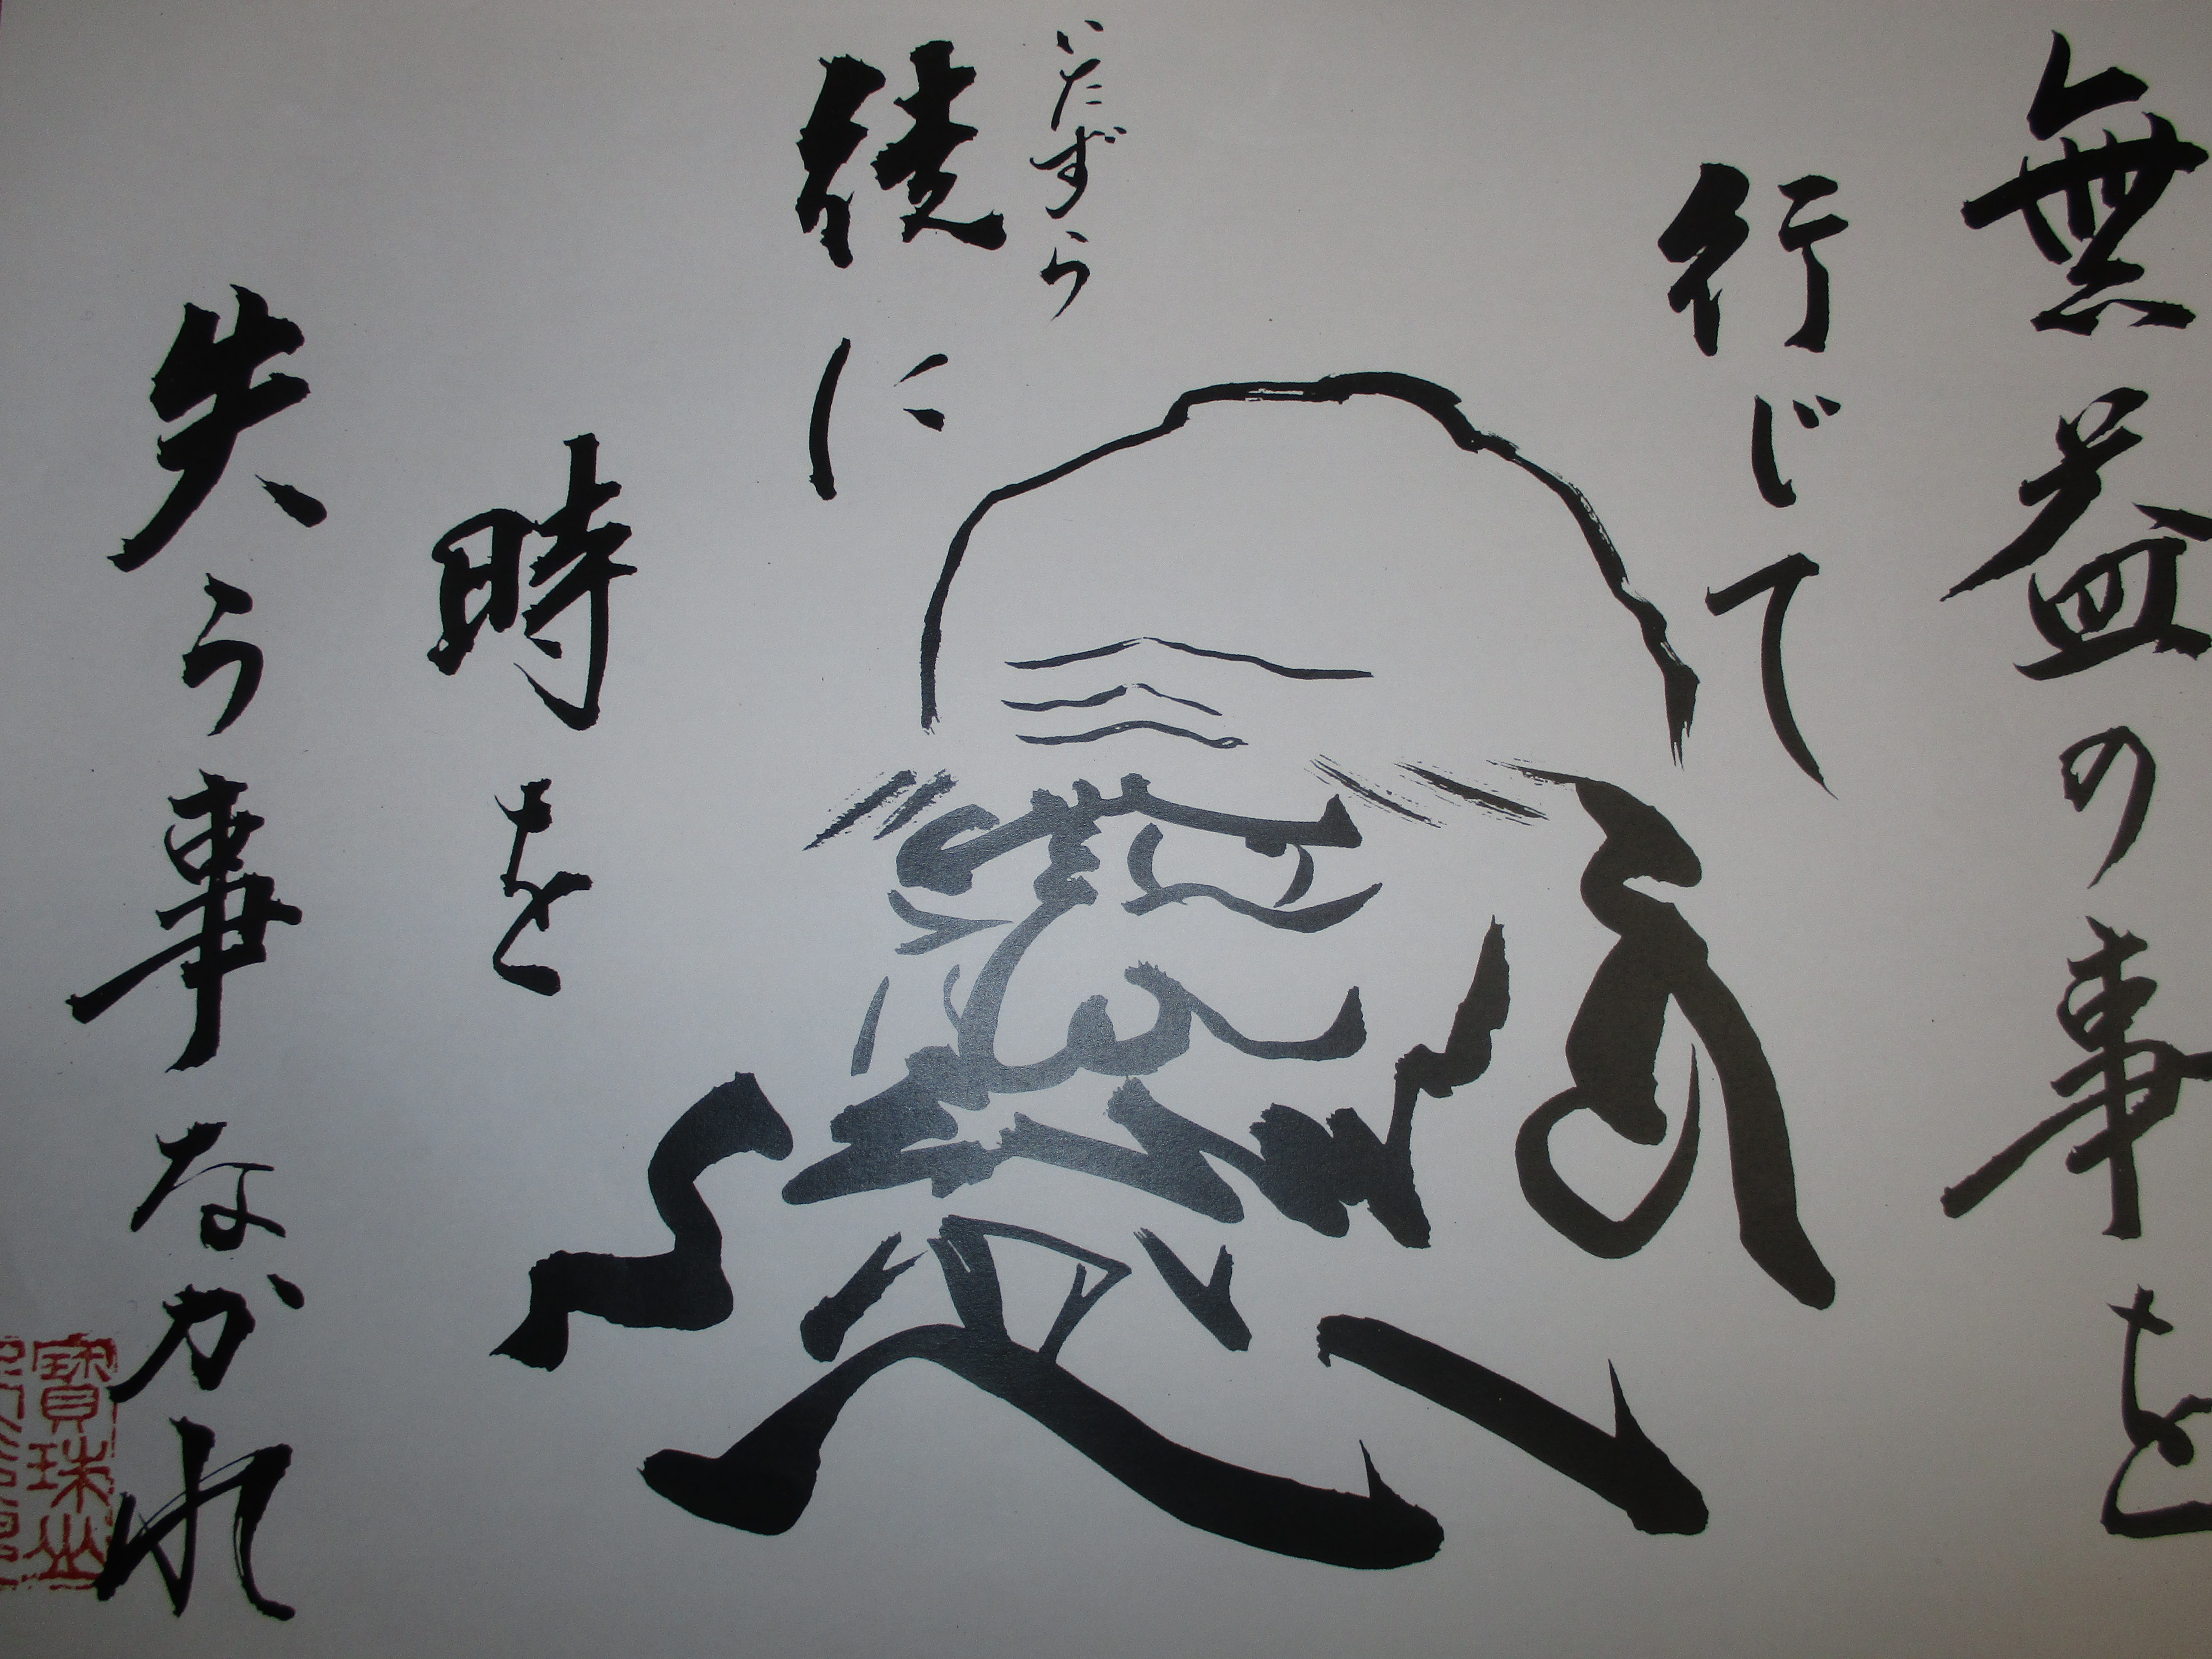 無益の事を
行じて
いたずら
徒に
時を
失う事なかれ
寶珠山